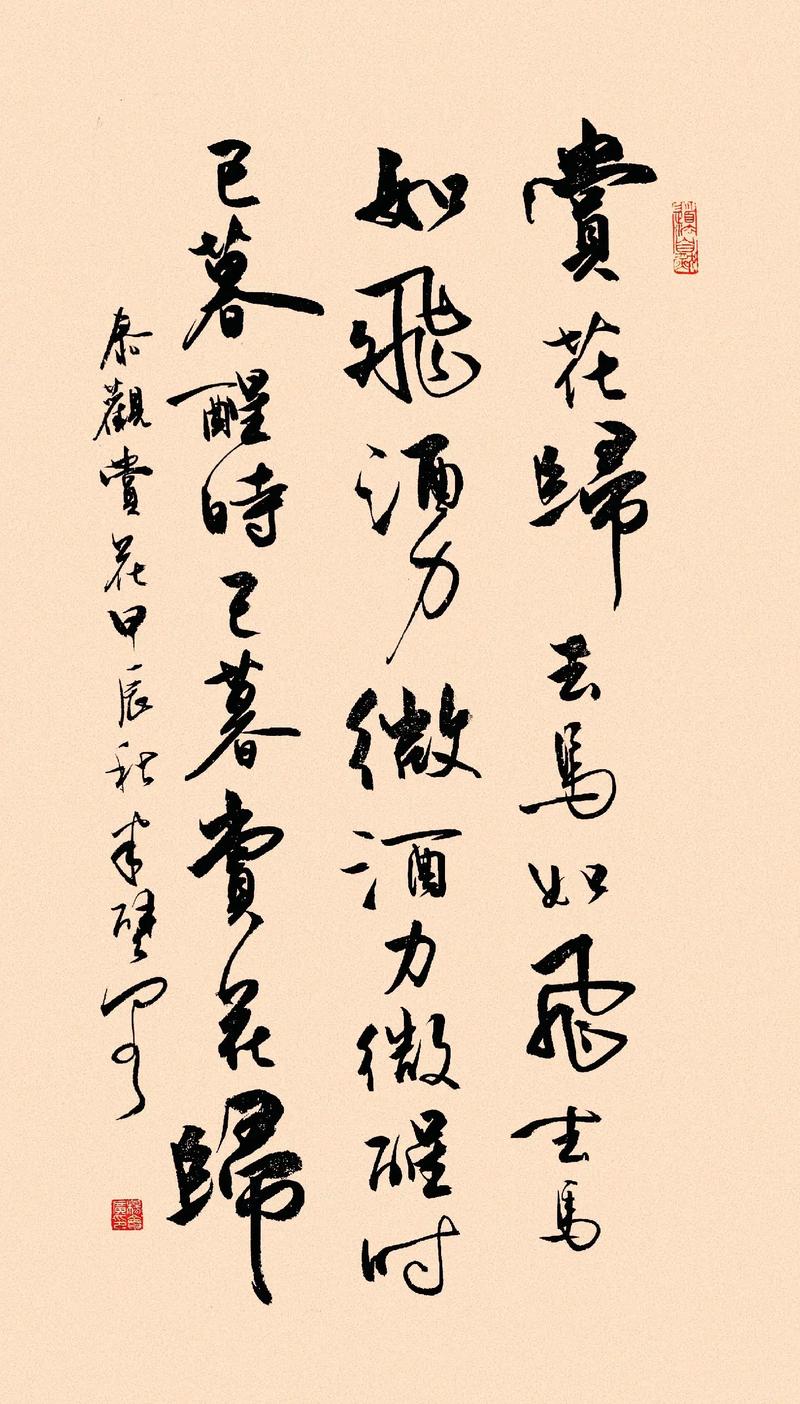 賞花歸去馬如飛去馬
如飛酒力微酒力微醒时
已暮醒時已暮賞花歸
秦觀賞花甲辰秋